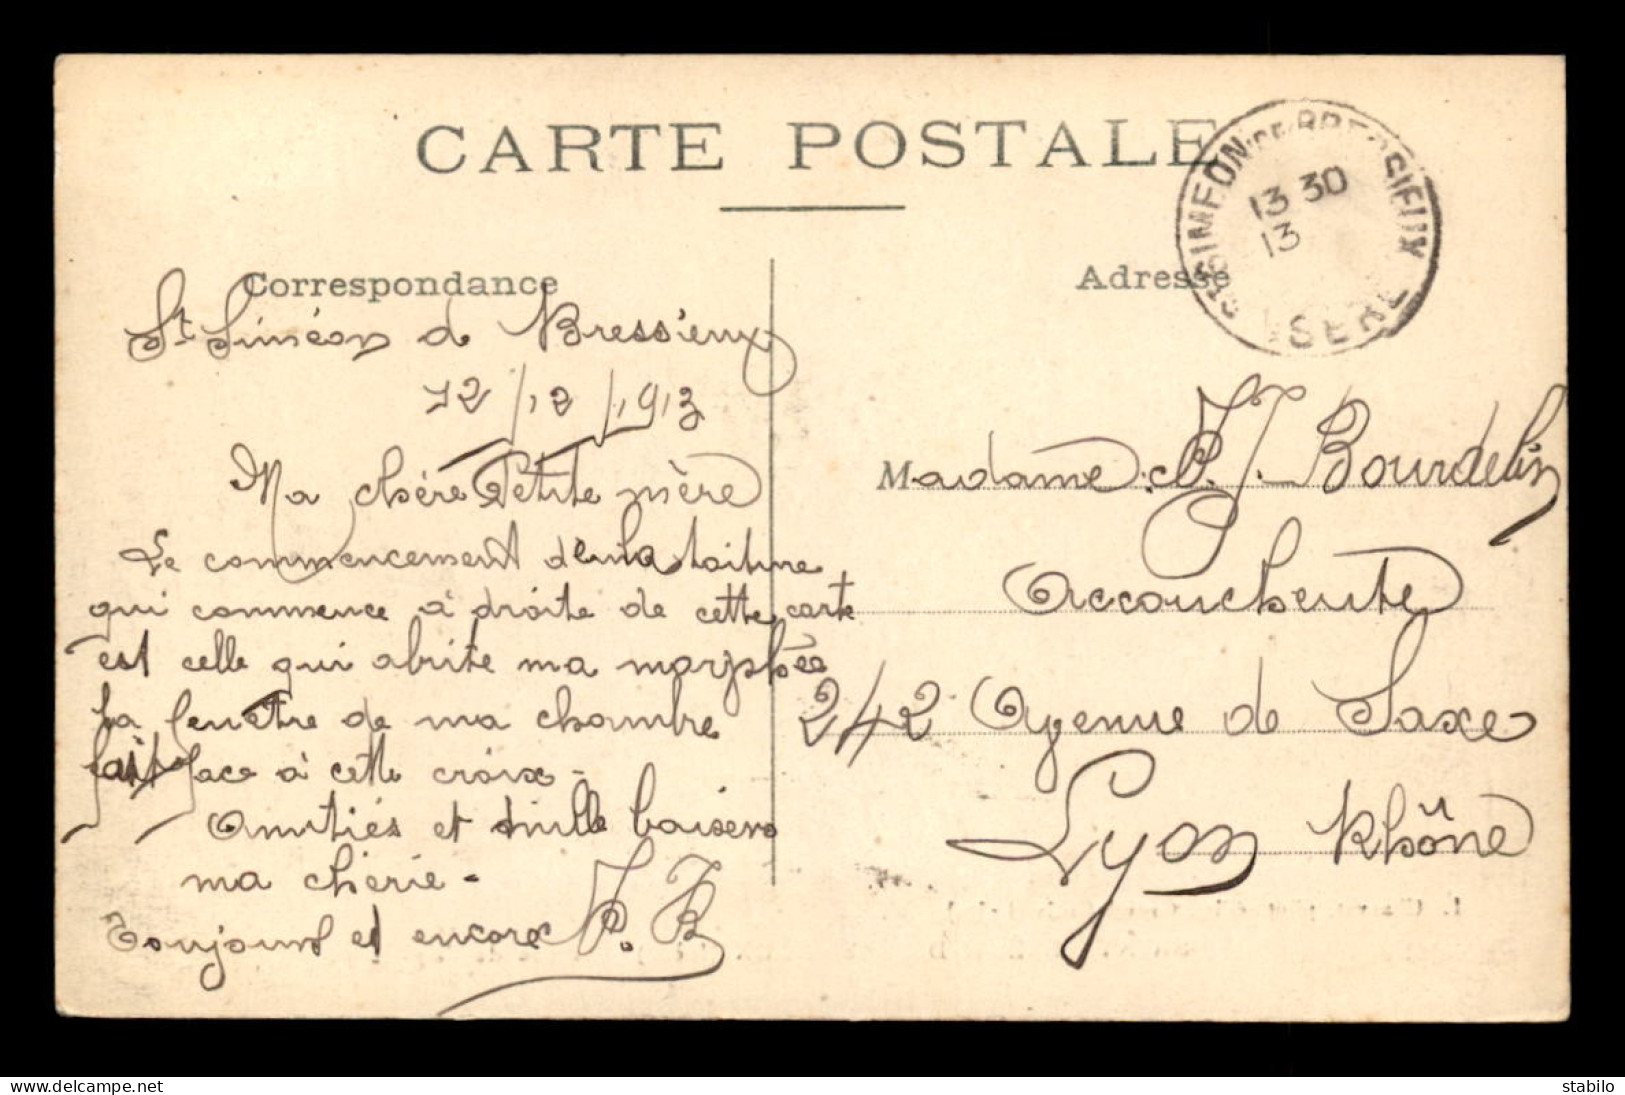 CARTE POSTALE
Correspondance
St Siméon de Bressieux
12/12/1913
Ma chère Petite mère
Le commencement de la toiture
qui commence à droite de cette carte
est celle qui abrite ma
La fenêtre de ma chambre
fait face à cette croix -
Amitiés et mille baisers
ma chérie -
Toujours et encore
ST SIMEON DE BRESSIEUX
13 30
13
ISERE
Adresse
Madame J. Bourdelin
Accoucheute
242 Avenue de Saxe
Lyon Rhône
delcampe.net
stabilo